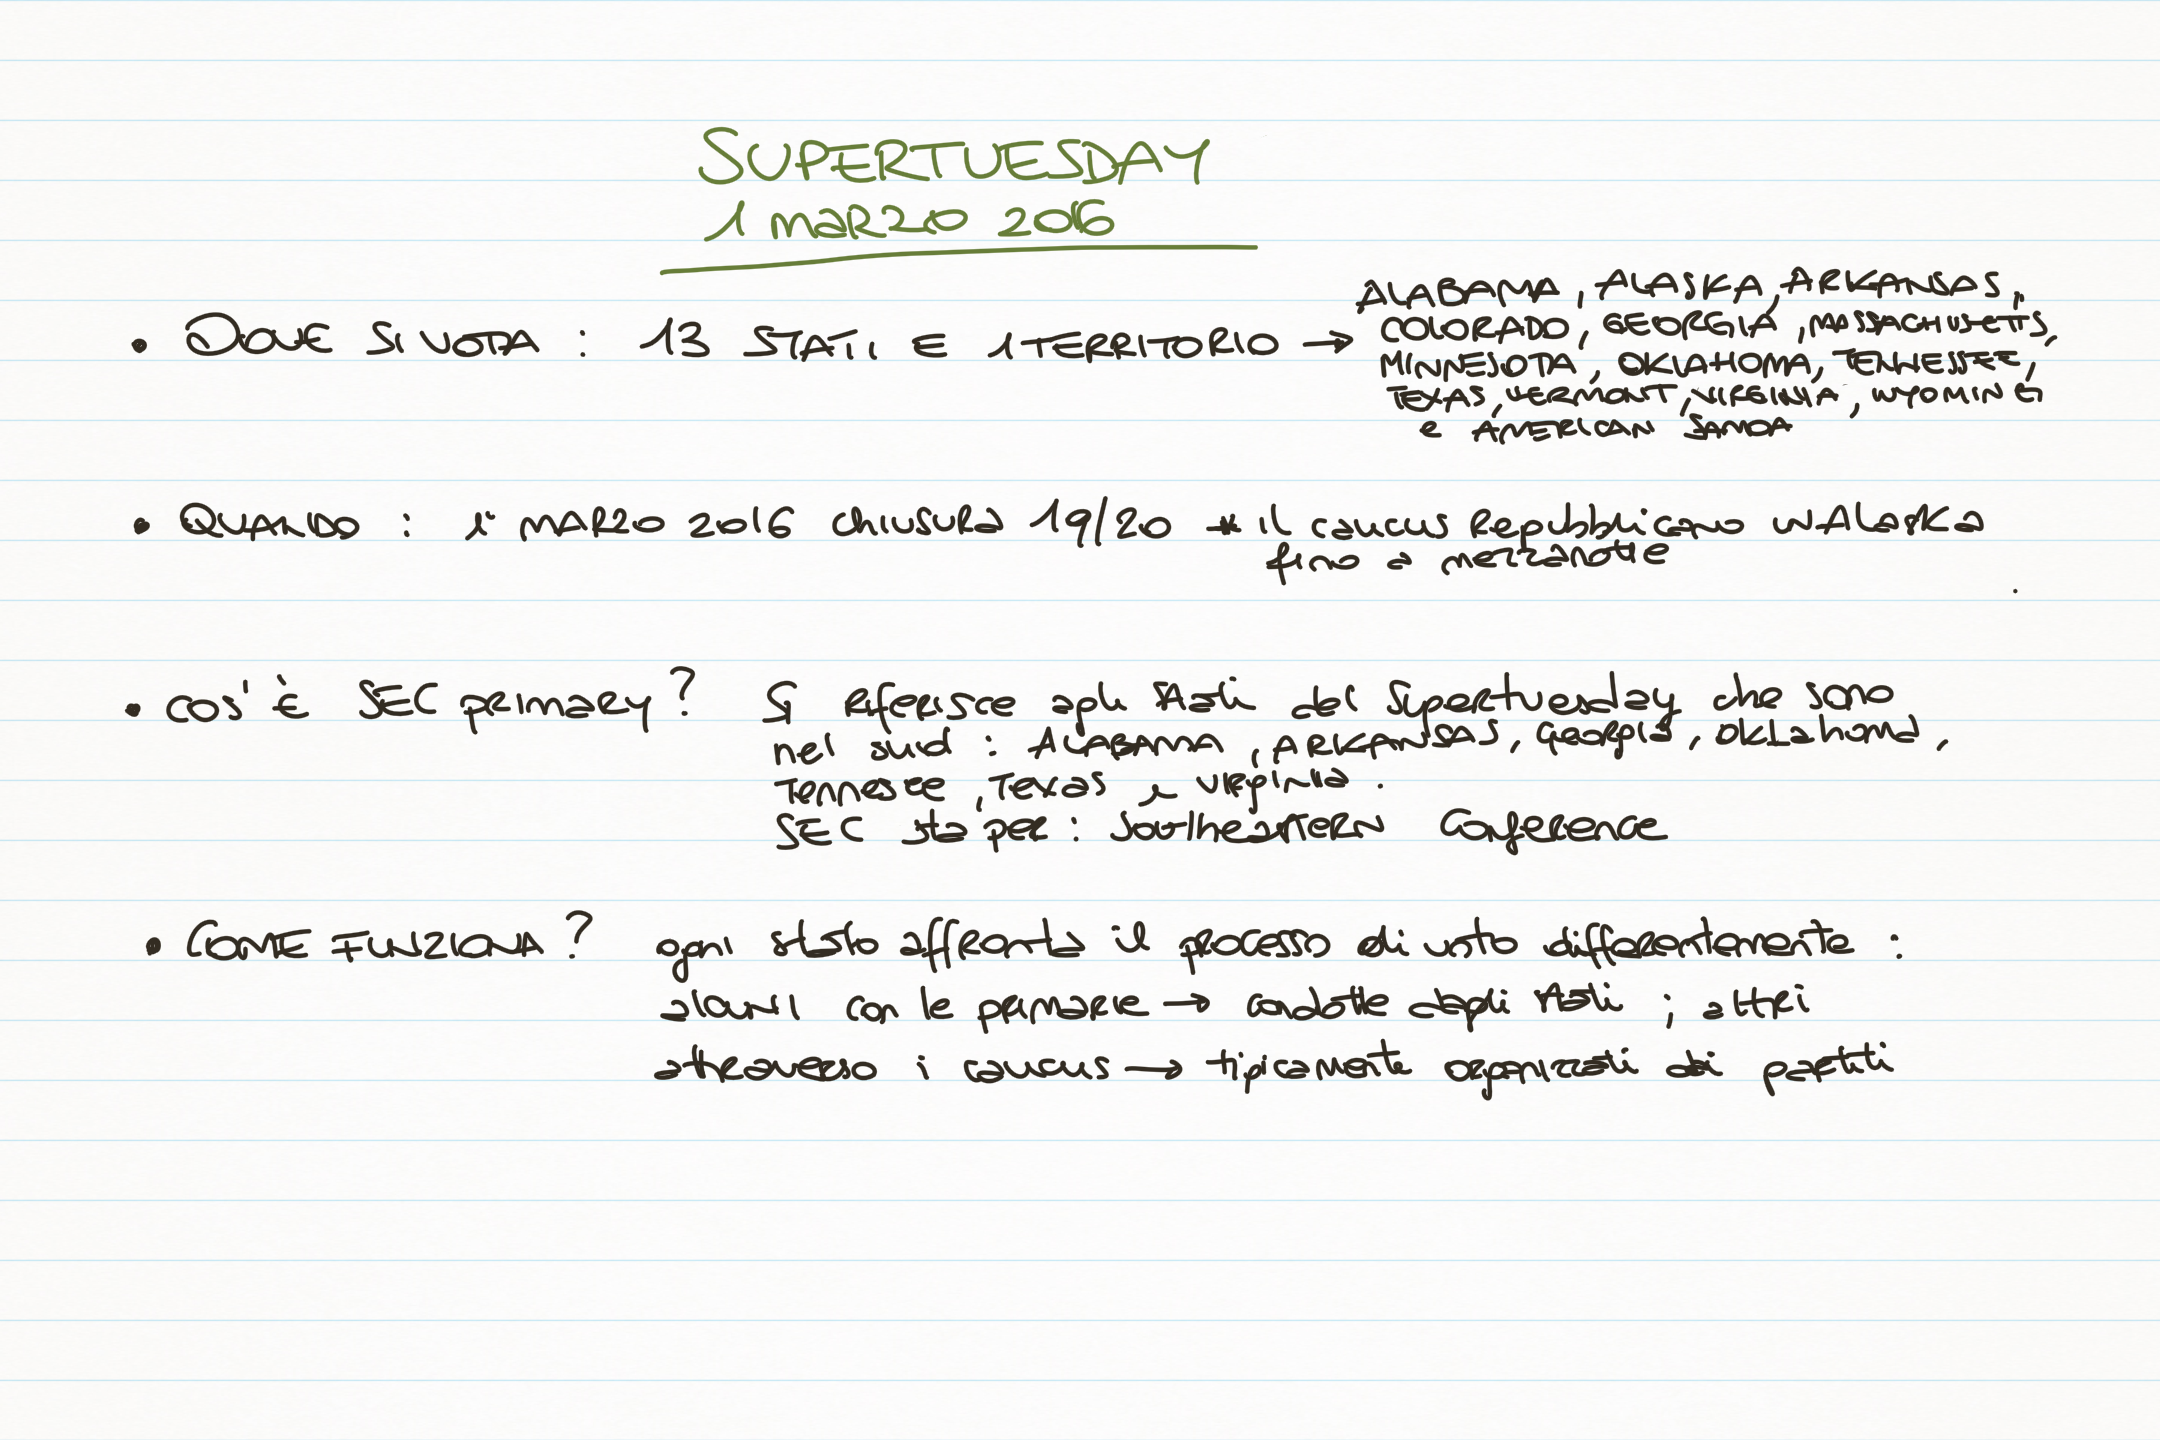 SUPERTUESDAY
1 marzo 2016
• DOVE SI VOTA : 13 STATI E 1 TERRITORIO →
ALABAMA, ALASKA, ARKANSAS,
COLORADO, GEORGIA, MASSACHUSETTS,
MINNESOTA, OKLAHOMA, TENNESSEE,
TEXAS, VERMONT, VIRGINIA, WYOMING
e AMERICAN SAMOA
• QUANDO : 1° MARZO 2016 chiusura 19/20 * il caucus Repubblicano in Alaska
fino a mezzanotte
• COS'È SEC primary? Si riferisce agli Stati del Supertuesday che sono
nel sud : ALABAMA, ARKANSAS, Georgia, Oklahoma,
Tennesee, Texas e Virginia.
SEC sta per : Southeastern Conference
• COME FUNZIONA? ogni stato affronta il processo di voto differentemente :
alcuni con le primarie → condotte dagli Stati ; altri
attraverso i caucus → tipicamente organizzati dai partiti